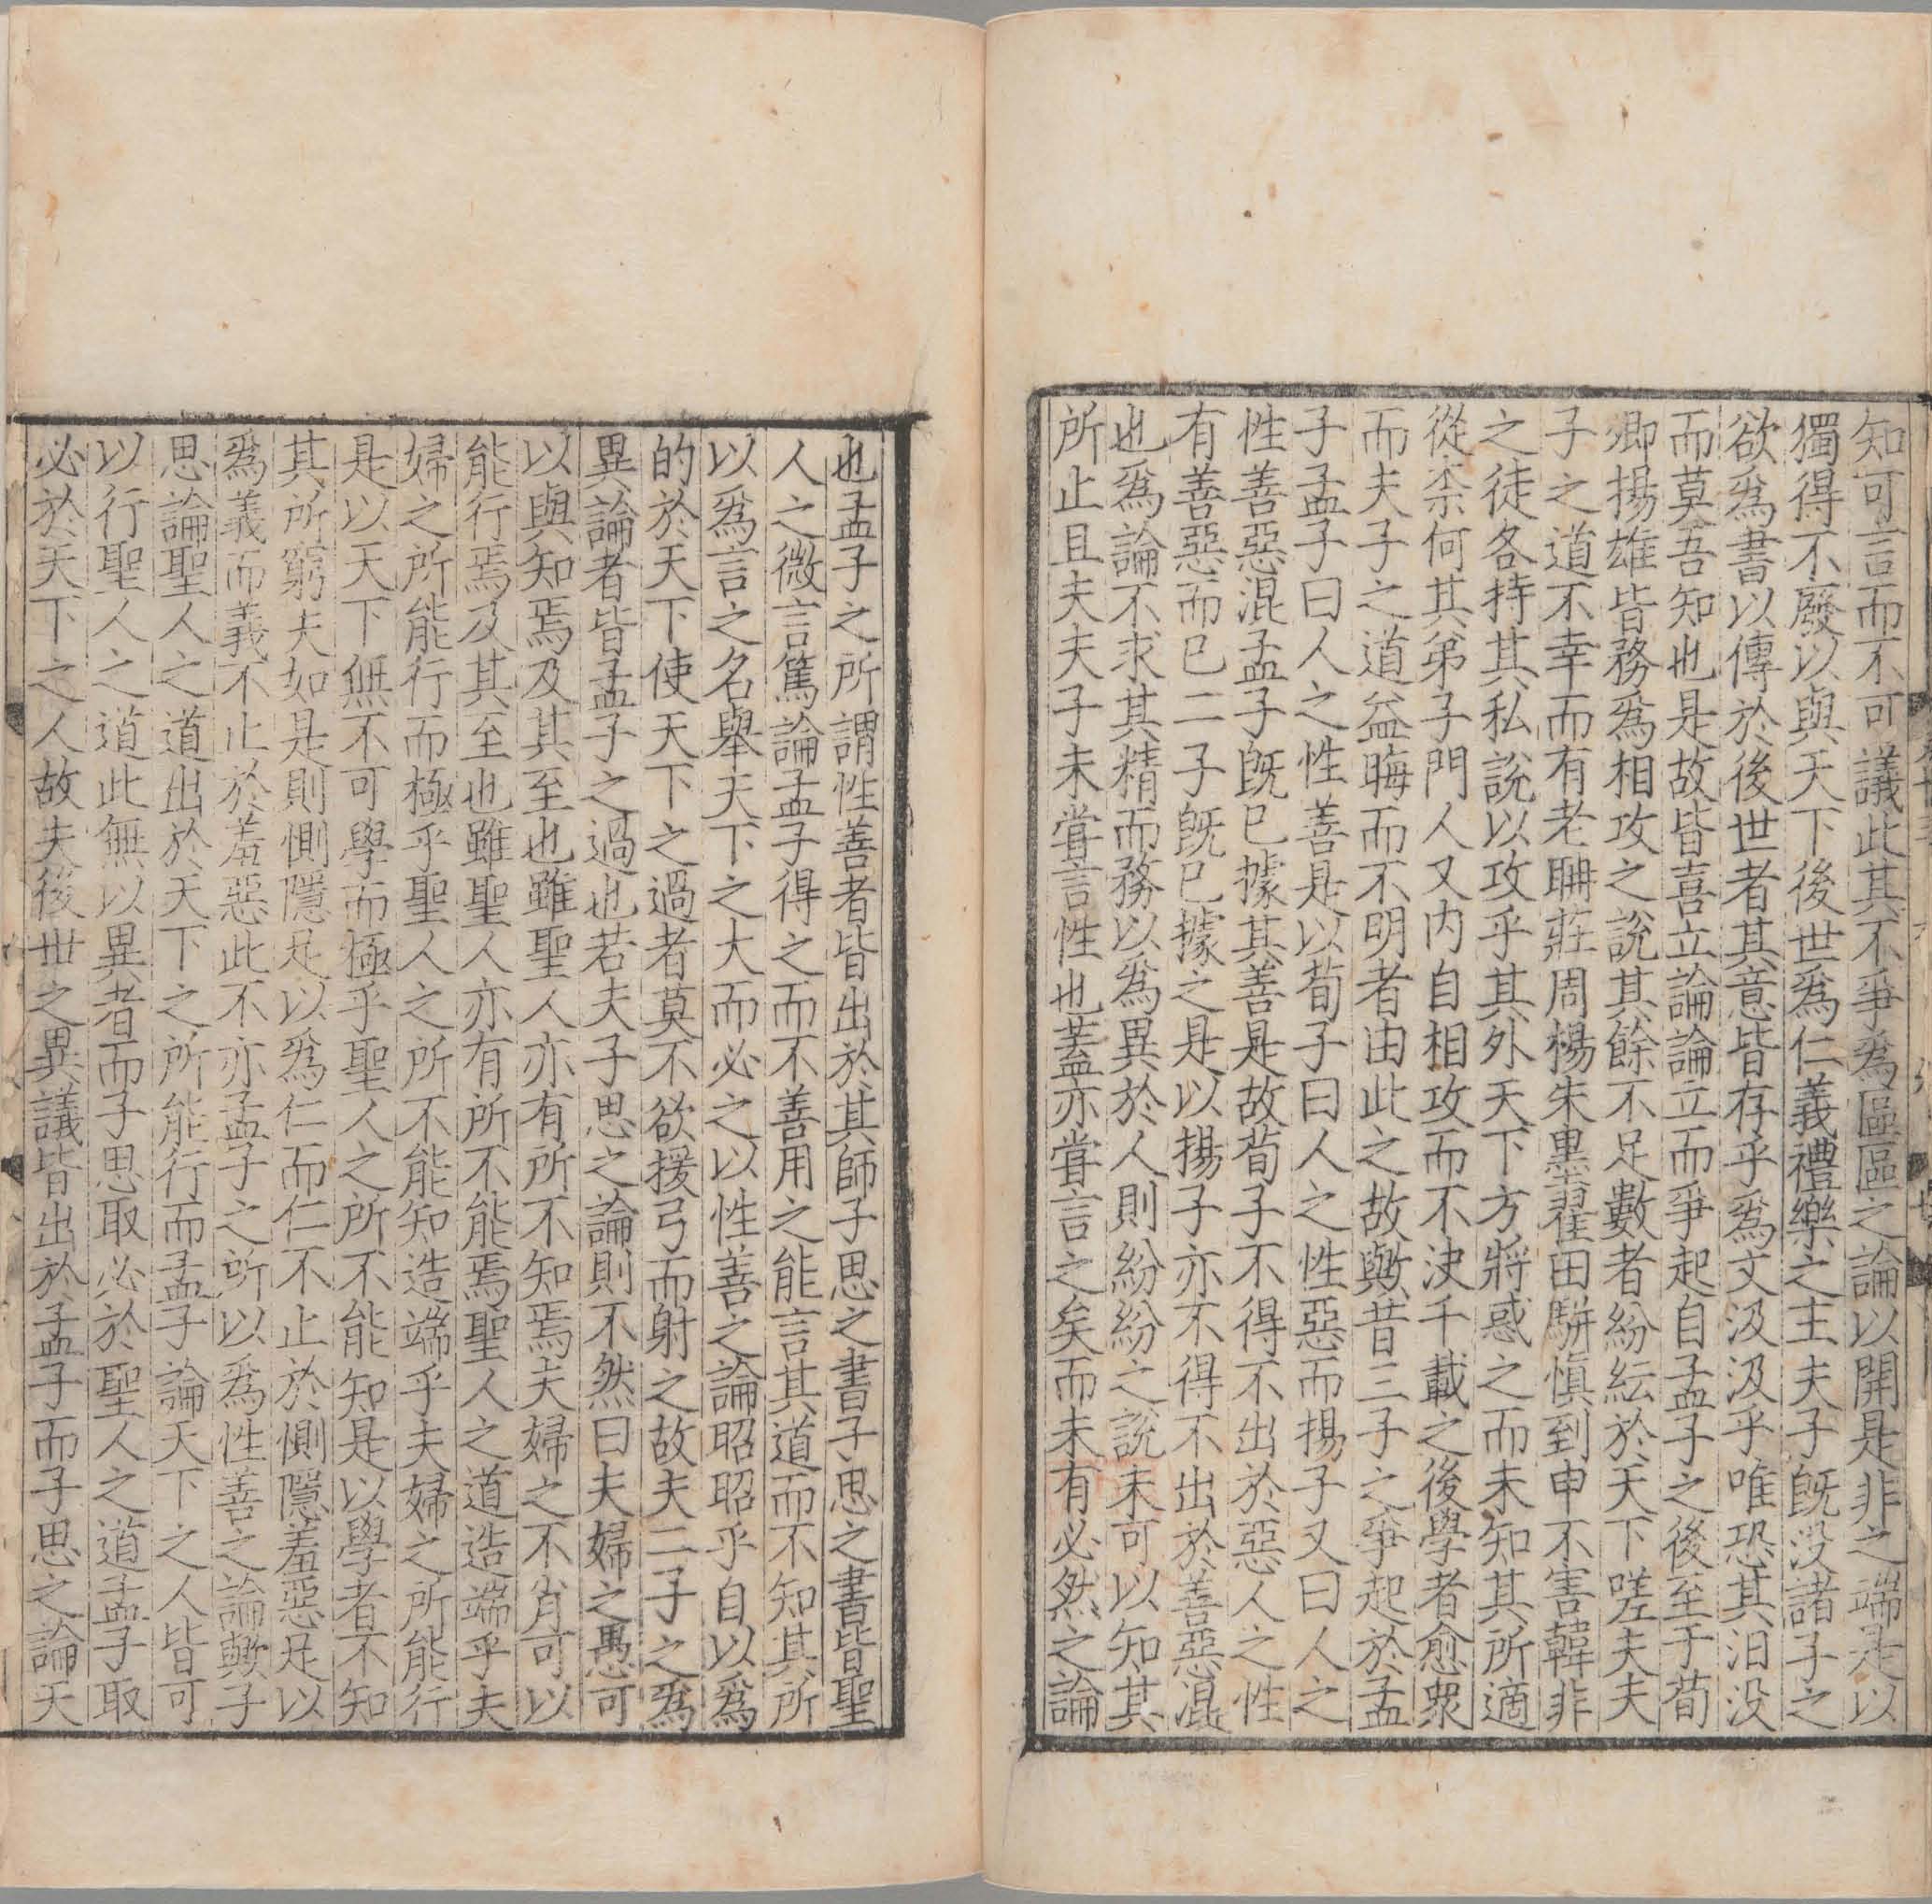 知可言而不可議此其不爭爲區區之論以開是非之端是以
獨得不廢以與天下後世爲仁義禮樂之主夫子旣没諸子之
欲爲書以傳於後世者其意皆存乎爲文汲汲乎唯恐其汨没
而莫吾知也是故皆喜立論論立而爭起自孟子之後至于荀
卿揚雄皆務爲相攻之說其餘不足數者紛紜於天下嗟夫夫
子之道不幸而有老耼莊周楊朱墨翟田駢愼到申不害韓非
之徒各持其私說以攻乎其外天下方將惑之而未知其所適
從柰何其弟子門人又内自相攻而不決千載之後學者愈衆
而夫子之道益晦而不明者由此之故歟昔三子之爭起於孟
子孟子曰人之性善是以荀子曰人之性惡而揚子又曰人之
性善惡混孟子旣已據其善是故荀子不得不出於惡人之性
有善惡而已二子旣已據之是以揚子亦不得不出於善惡混
也爲論不求其精而務以爲異於人則紛紛之說未可以知其
所止且夫夫子未甞言性也蓋亦甞言之矣而未有必然之論
也孟子之所謂性善者皆出於其師子思之書子思之書皆聖
人之微言篤論孟子得之而不善用之能言其道而不知其所
以爲言之名舉天下之大而必之以性善之論昭昭乎自以爲
的於天下使天下之過者莫不欲援弓而射之故夫二子之爲
異論者皆孟子之過也若夫子思之論則不然曰夫婦之愚可
以與知焉及其至也雖聖人亦有所不知焉夫婦之不肖可以
能行焉及其至也雖聖人亦有所不能焉聖人之道造端乎夫
婦之所能行而極乎聖人之所不能知造端乎夫婦之所能行
是以天下無不可學而極乎聖人之所不能知是以學者不知
其所窮夫如是則惻隱足以爲仁而仁不止於惻隱羞惡足以
爲義而義不止於羞惡此不亦孟子之所以爲性善之論歟子
思論聖人之道出於天下之所能行而孟子論天下之人皆可
以行聖人之道此無以異者而子思取必於聖人之道孟子取
必於天下之人故夫後世之異議皆出於孟子而子思之論天